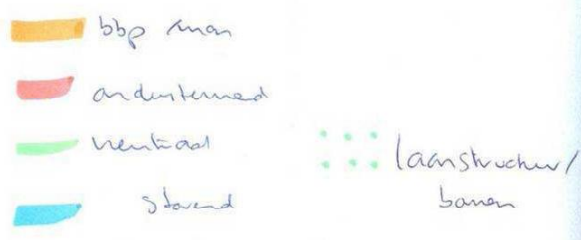 bbp man
ondersteunend
neutraal
storend
laanstructuur/
bomen